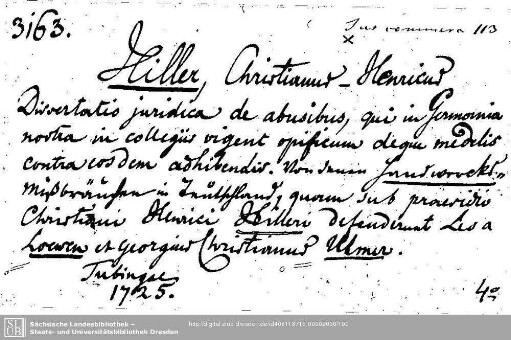 3163.
113
Hiller, Christianus Henricus
Dissertatio juridica de abusibus, qui in Germania
nostra in collegiis vigent opificum deque medelis
contra eosdem adhibendis. Von denen Handwercks-
Mißbräuchen in Teutschland, quam sub praesidio
Christiani Henrici Hilleri defenderunt Leo a
Loewen et Georgius Christianus Ulmer.
Tubingae
1725.
4°
Sächsische Landesbibliothek –
Staats- und Universitätsbibliothek Dresden